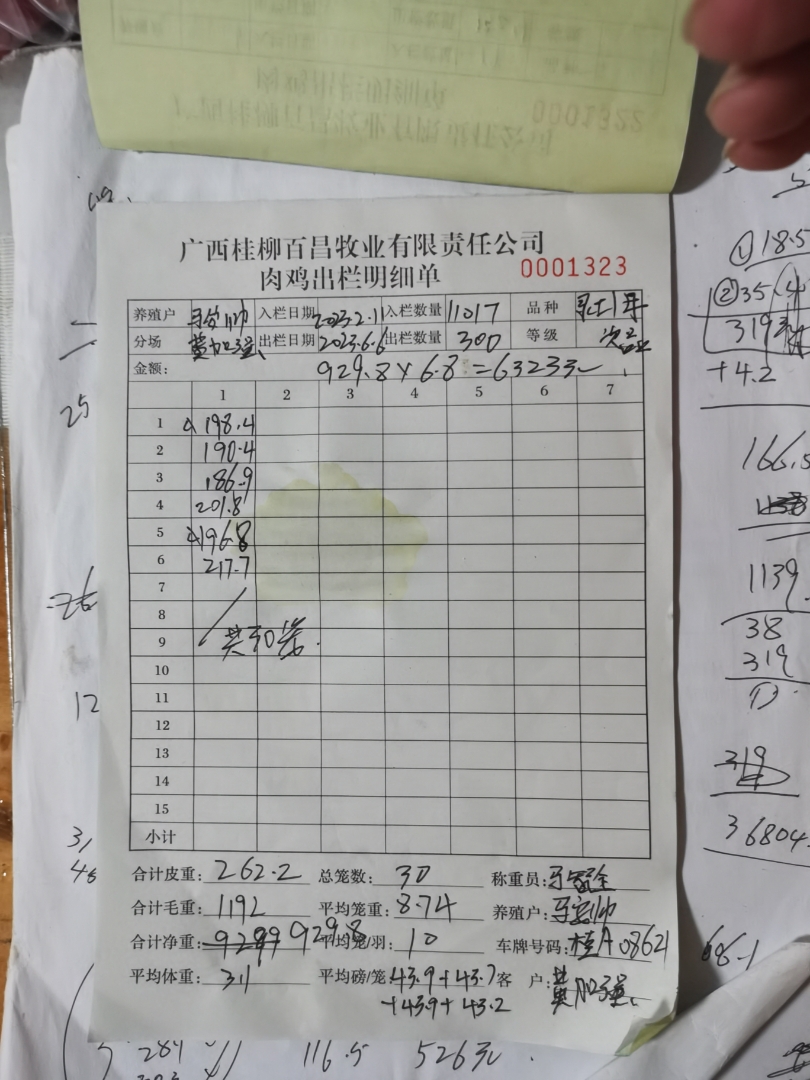 0001322
广西桂柳百昌牧业有限责任公司
肉鸡出栏明细单 0001323
养殖户 入栏日期 2023.2.11 入栏数量 11017 品种
分场 黄加强 出栏日期 2023.6.6 出栏数量 300 等级 次品
金额: 929.8×6.8=6323元
1 2 3 4 5 6 7
1 198.4
2 190.4
3 186.9
4 201.8
5 196.8
6 217.7
7
8
9 共30笼.
10
11
12
13
14
15
小计
合计皮重: 262.2 总笼数: 30 称重员:
合计毛重: 1192 平均笼重: 8.74 养殖户:
合计净重: 929.8 平均笼/羽: 10 车牌号码: 桂A08621
平均体重: 3.1 平均磅/笼: 43.9+43.7 客 户: 黄加强
+43.9+43.2
25
12
① 18.5
② 35
319
+4.2
166.5
1139
38
319
319
36804.
68-1
284 116.5 526元.